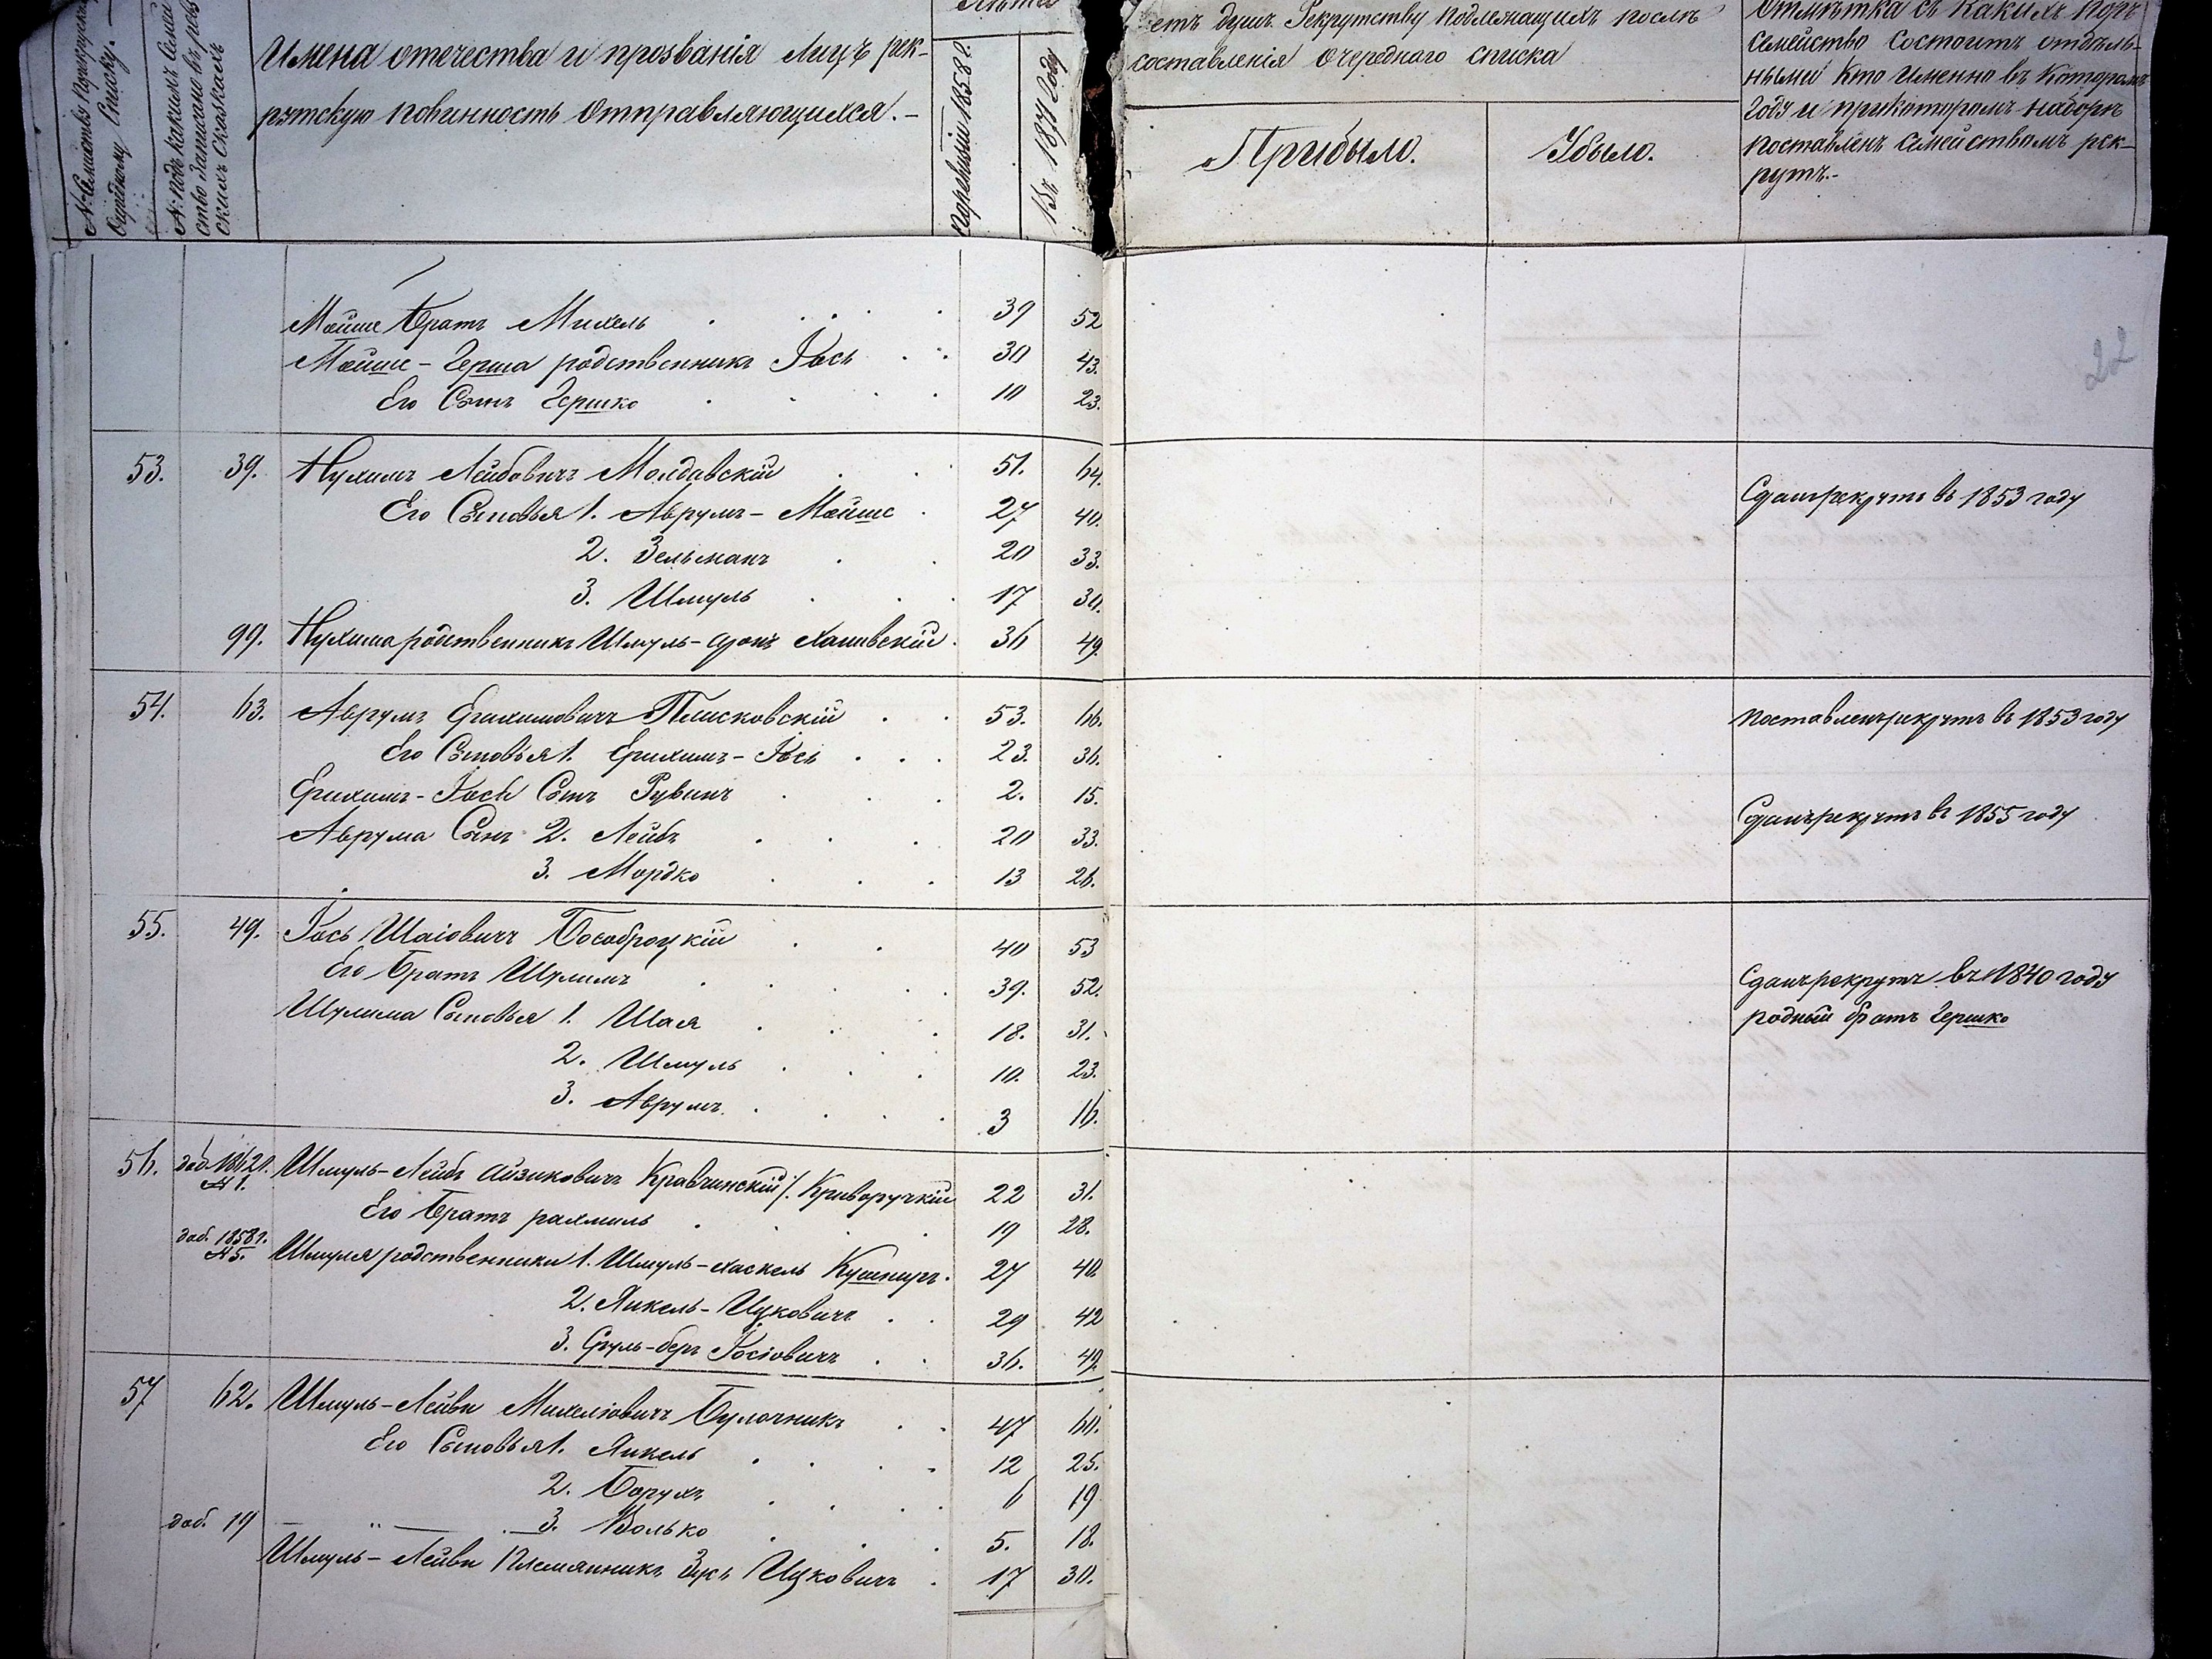 № Семейства по рекрутскому
Очередному Списку.
№ подъ какимъ Семей
ство Записано въ рев
скихъ Сказкахъ
Имена отечества и прозванія лицъ рек-
рутскую повинность отправляющихся.-
Лѣта
По ревизіи 1858 г.
Въ 1871 Году
етъ душъ Рекрутству подлежащихъ послѣ
составленія Очереднаго списка
Прибыло.
Убыло.
Отмѣтка съ какихъ поръ
семейство состоитъ отдѣль-
нымъ Кто Именно въ Которомъ
Году и прикоторомъ наборѣ
поставленъ семействомъ рек-
рутъ.-
22
Мойше братъ Михель 39 52
Мойше-Герша родственникъ Іось 30 43.
Его Сынъ Гершко 10 23.
53. 39. Нухимъ Лейбовичъ Молдавскій 51. 64.
Сданъ рекрутъ въ 1853 году
Его Сыновья 1. Аврумъ-Мойше 27 40.
2. Зельманъ 20 33.
3. Шмуль 17 30.
99. Нухима родственникъ Шмуль-Аронъ 36 49.
54. 63. Аврумъ Ерихимовичъ Песковскій 53. 66.
поставленъ рекрутъ въ 1853 году
Его Сыновья 1. Ерихимъ-Іось 23. 36.
Ерихимъ-Іося Сынъ Рувинъ 2. 15.
Сданъ рекрутъ въ 1855 году
Аврума Сынъ 2. Лейбъ 20 33.
3. Мордко 13 26.
55. 49. Іось Шаіовичъ Бособродзкій 40 53
Его Братъ Шулимъ 39. 52.
Сданъ рекрутъ въ 1840 году
родный братъ Гершко
Шулима Сыновья 1. Шая 18. 31.
2. Шмуль 10. 23.
3. Аврумъ 3 16.
56. доб. 1862 г. № 1. Шмуль-Лейбъ Айзиковичъ Кравчинскій /. Криворучкій 22 31.
Его Братъ рахмиль 19 28.
доб. 1858 г. № 5. Шмуля родственники 1. Шмуль-хаскель Кушниръ. 27 40.
2. Янкель-Ицковичъ 29 42
3. Сруль-беръ Іосіовичъ 36. 49.
57 62. Шмуль-Лейви Михеліовичъ Булочникъ 47 60.
Его Сыновья 1. Янкель 12 25.
2. Борухъ 6 19
доб. 19 — " — 3. Волько 5. 18.
Шмуль-Лейви Племянникъ Ицковичъ 17 30.